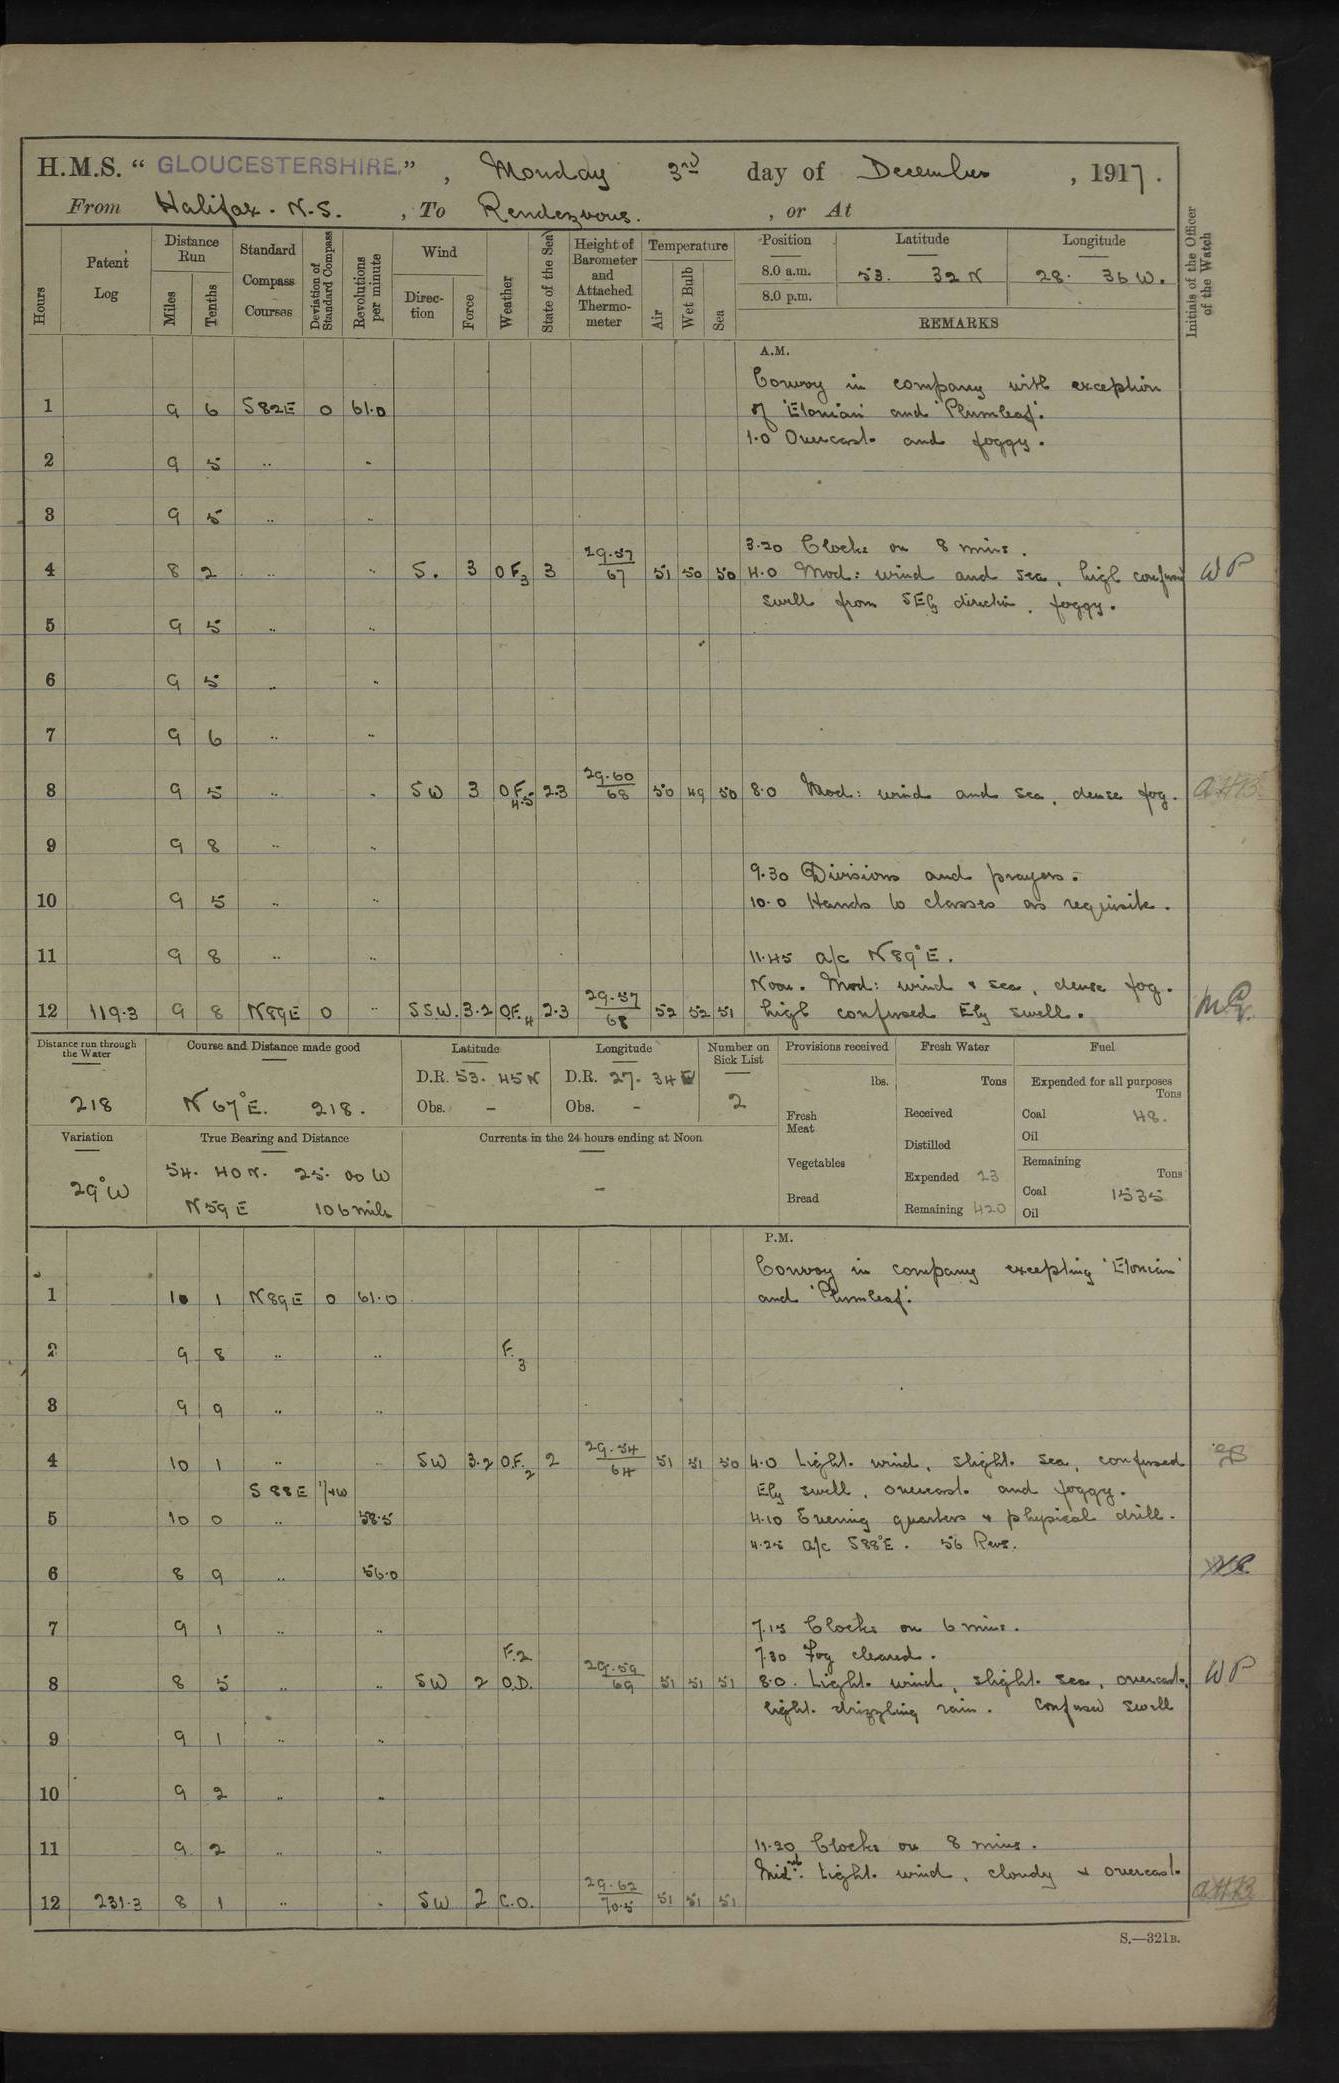 H.M.S. “ GLOUCESTERSHIRE. ” , Monday 3rd day of December , 1917.
From Halifax. N.S. , To Rendezvous. , or At
Hours
Patent Log
Distance Run
Miles
Tenths
Standard Compass Courses
Deviation of Standard Compass
Revolutions per minute
Wind
Direction
Force
Weather
State of the Sea
Height of Barometer and Attached Thermometer
Temperature
Air
Wet Bulb
Sea
Position
Latitude
Longitude
8.0 a.m. 53. 32 N 28. 36 W.
8.0 p.m.
REMARKS
Initials of the Officer of the Watch
A.M.
Convoy in company with exception
1 9 6 S82E 0 61.0 of 'Etonian' and 'Plumleaf'.
1.0 Overcast and foggy.
2 9 5 .. ..
3 9 5 .. ..
3.20 Clocks on 8 mins.
4 8 2 .. .. S. 3 OF3 3 29.57/67 51 50 50 4.0 Mod: wind and sea, high confused WP
swell from SEly direction, foggy.
5 9 5 .. ..
6 9 5 .. ..
7 9 6 .. ..
8 9 5 .. .. SW 3 O.F. 4.5 2.3 29.60/68 50 49 50 8.0 Mod: wind and sea, dense fog. AHB
9 9 8 .. ..
9.30 Divisions and prayers.
10 9 5 .. .. 10.0 Hands to classes as requisite.
11 9 8 .. .. 11.45 a/c N89°E.
Noon. Mod: wind & sea, dense fog.
12 119.3 9 8 N89E 0 .. SSW. 3.2 O.F.4 2.3 29.57/68 52 52 51 high confused Ely swell.
Distance run through the Water
218
Course and Distance made good
N 67°E. 218.
Latitude
D.R. 53. 45 N
Obs. -
Longitude
D.R. 27. 34 W
Obs. -
Number on Sick List
2
Provisions received
lbs.
Fresh Meat
Vegetables
Bread
Fresh Water
Tons
Received
Distilled
Expended 23
Remaining 420
Fuel
Expended for all purposes
Tons
Coal 48.
Oil
Remaining
Tons
Coal 1535
Oil
Variation
29°W
True Bearing and Distance
54. 40 N. 25. 00 W
N 59 E 106 miles
Currents in the 24 hours ending at Noon
-
P.M.
Convoy in company excepting 'Etonian'
1 10 1 N89E 0 61.0 and 'Plumleaf'.
2 9 8 .. .. F.3
3 9 9 .. ..
4 10 1 .. .. SW 3.2 O.F.2 2 29.54/64 51 51 50 4.0 Light wind, slight sea, confused
S 88E 1/2W Ely swell, overcast and foggy.
5 10 0 .. 58.5 4.10 Evening quarters & physical drill.
4.25 a/c S88°E. 56 Revs.
6 8 9 .. 56.0
7 9 1 .. .. 7.15 Clocks on 6 mins.
F.2 7.30 Fog cleared.
8 8 5 .. .. SW 2 O.D. 29.59/69 51 51 51 8.0. Light wind, slight sea, overcast, WP
light drizzling rain. Confused swell
9 9 1 .. ..
10 9 2 .. ..
11 9 2 .. .. 11.20 Clocks on 8 mins.
Midnt. Light wind, cloudy & overcast.
12 231.3 8 1 .. .. SW 2 C.O. 29.62/70.5 51 51 51 AHB
S.—321B.